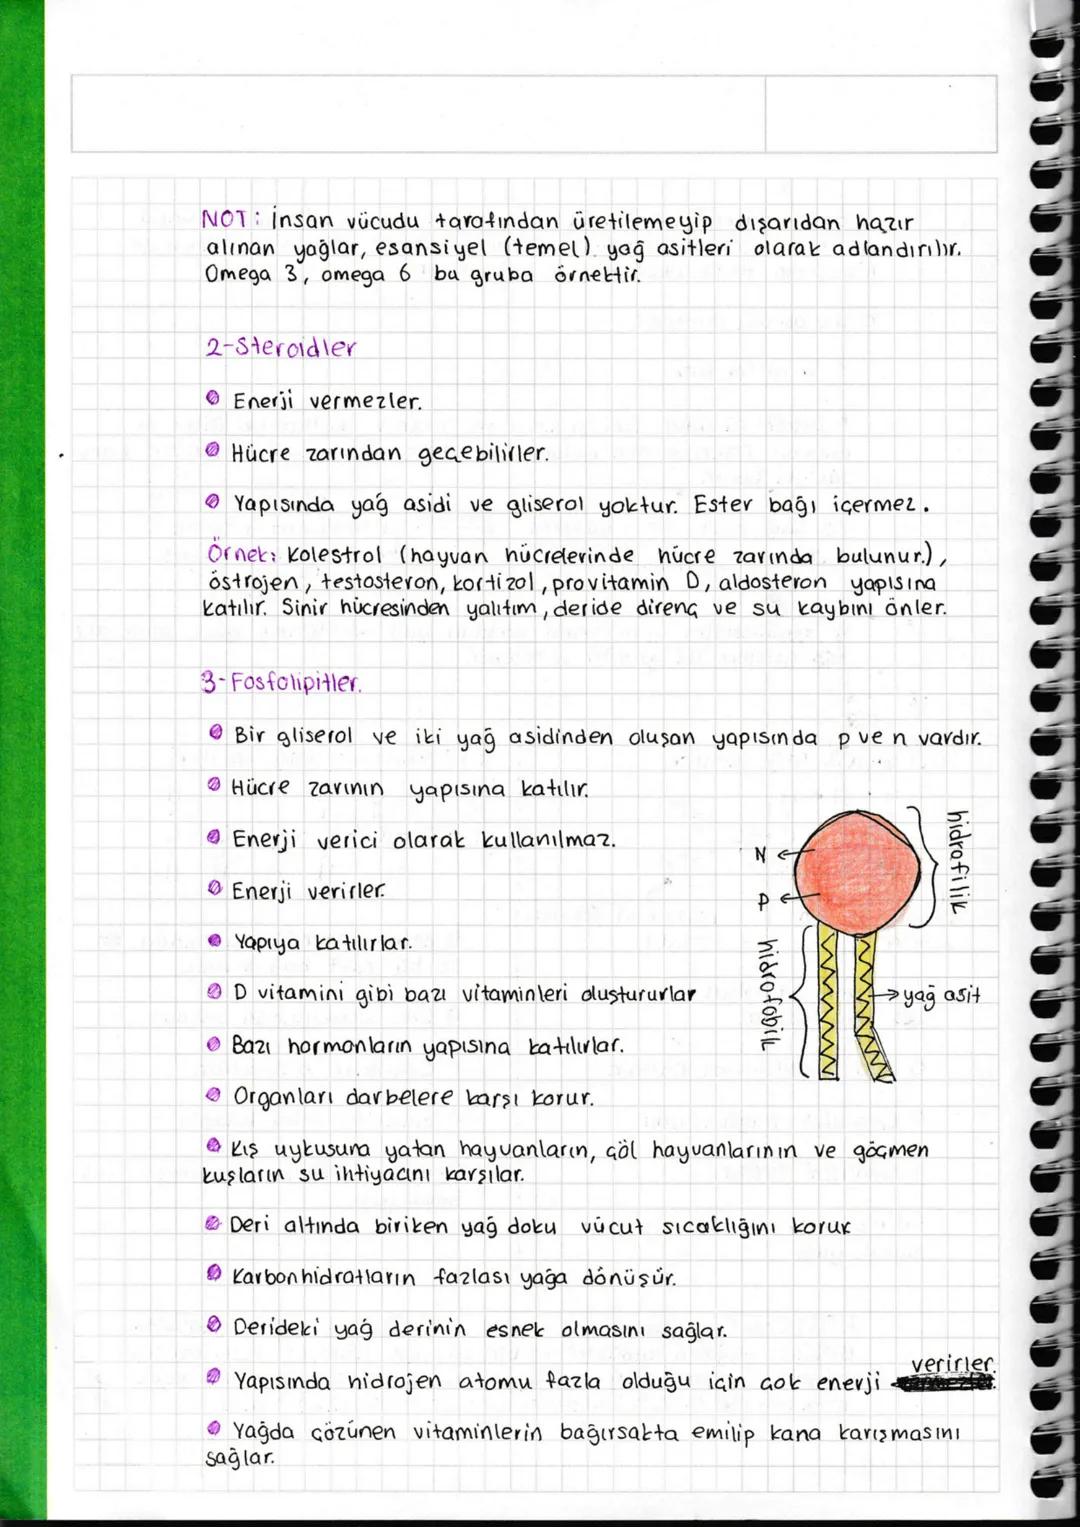 NOT: İnsan vücudu tarafından üretilemeyip dışarıdan hazır
alınan yağlar, esansiyel (temel) yağ asitleri olarak adlandırılır.
Omega 3, omega 6 bu gruba örnektir.
2-Steroidler
Enerji vermezler.
Hücre zarından geçebilirler.
Yapısında yağ asidi ve gliserol yoktur. Ester bağı içermez.
Örnek: Kolestrol (hayvan hücrelerinde hücre zarında bulunur.),
östrojen, testosteron, kortizol, provitamin D, aldosteron yapısına
katılır. Sinir hücresinden yalıtım, deride direnç ve su kaybını önler.
3-Fosfolipitler.
Bir gliserol ve iki yağ asidinden oluşan yapısında p ve n vardır.
Hücre zarının yapısına katılır.
Enerji verici olarak kullanılmaz.
Enerji verirler.
Yapıya katılırlar.
D vitamini gibi bazı vitaminleri oluştururlar
Bazı hormonların yapısına katılırlar.
Organları darbelere karşı korur.
N
P
hidrofilik
hidrofobik
yağ asit
Kış uykusuna yatan hayvanların, çöl hayvanlarının ve göçmen
kuşların su ihtiyacını karşılar.
Deri altında biriken yağ doku vücut sıcaklığını korur
Karbonhidratların fazlası yağa dönüşür.
Derideki yağ derinin esnek olmasını sağlar.
Yapısında hidrojen atomu fazla olduğu için çok enerji verirler.
Yağda çözünen vitaminlerin bağırsakta emilip kana karışmasını
sağlar.